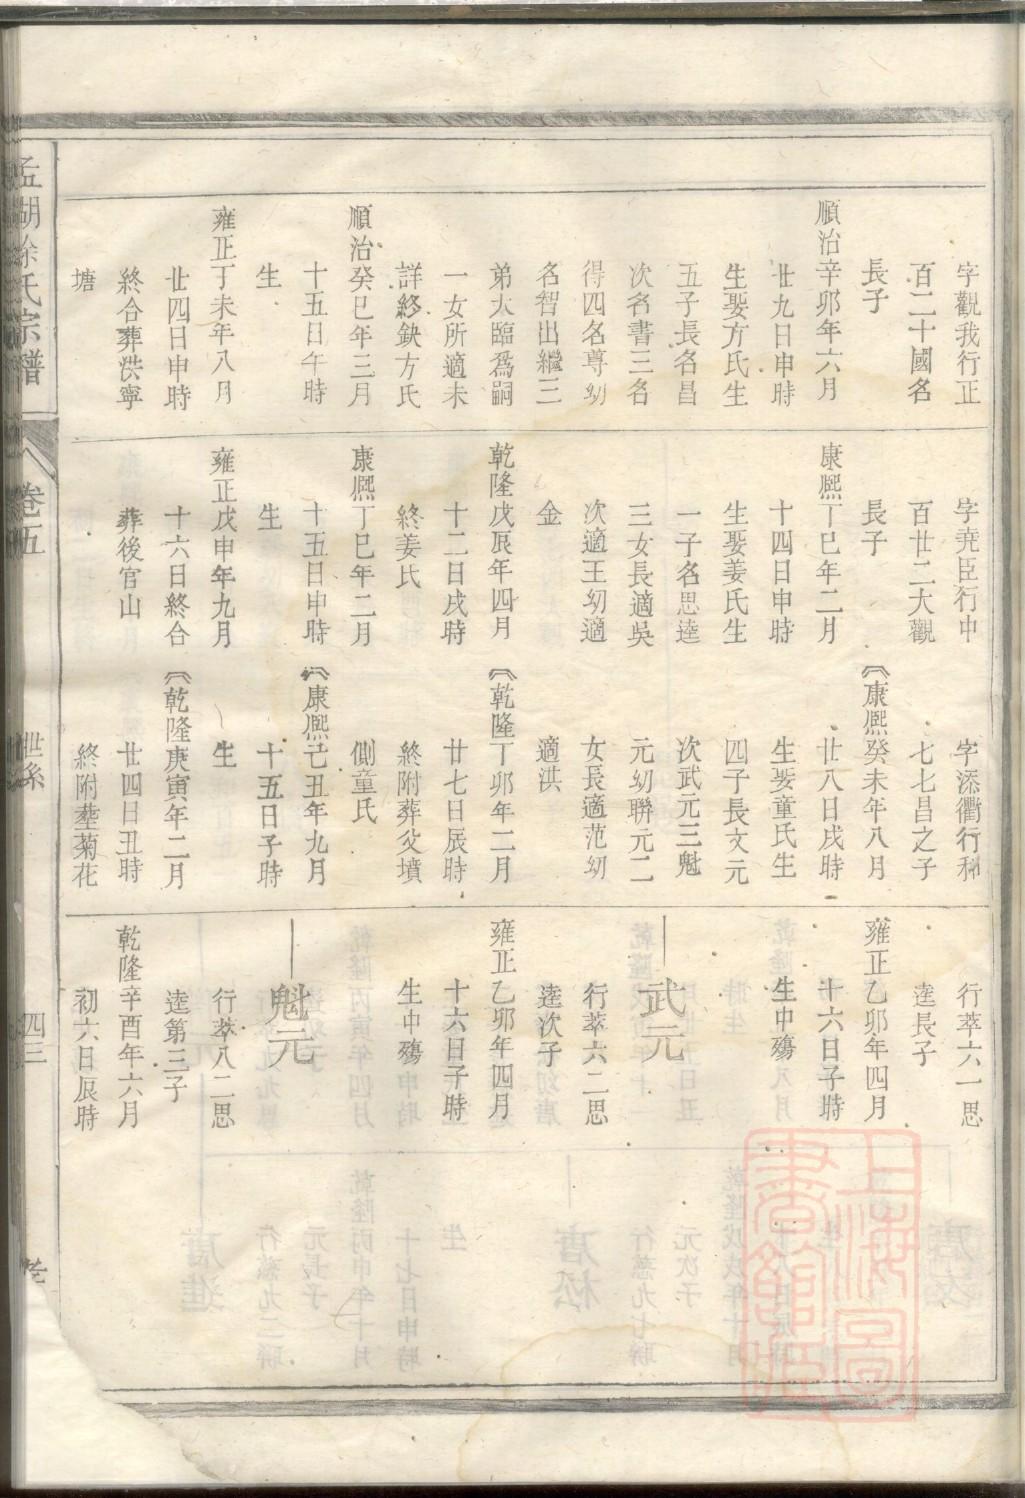 字觀我行正
百二十國名
長子
順治辛卯年六月
廿九日申時
生娶方氏生
五子長名昌
次名書三名
得四名尊幼
名智出繼三
弟大臨爲嗣
一女所適未
詳終缺方氏
順治癸巳年三月
十五日午時
生
雍正丁未年八月
廿四日申時
終合葬洪寧
塘
字堯臣行中
百廿二大觀
長子
康熙丁巳年二月
十四日申時
生娶姜氏生
一子名思逵
三女長適吳
次適王幼適
金
乾隆戊辰年四月
十二日戌時
終姜氏
康熙丁巳年二月
十五日申時
生
雍正戊申年九月
十六日終合
葬後官山
字添衢行和
七七昌之子
康熙癸未年八月
廿八日戌時
生娶童氏生
四子長文元
次武元三魁
元幼聯元二
女長適范幼
適洪
乾隆丁卯年二月
廿七日辰時
終附葬父墳
側童氏
康熙己丑年九月
十五日子時
生
乾隆庚寅年二月
廿四日丑時
終附塟菊花
行萃六一思
逵長子
雍正乙卯年四月
十六日子時
生中殤
武元
行萃六二思
逵次子
雍正乙卯年四月
十六日子時
生中殤
魁元
行萃八二思
逵第三子
乾隆辛酉年六月
初六日辰時
孟湖徐氏宗譜
卷五
世系
四三
上海圖
書館藏